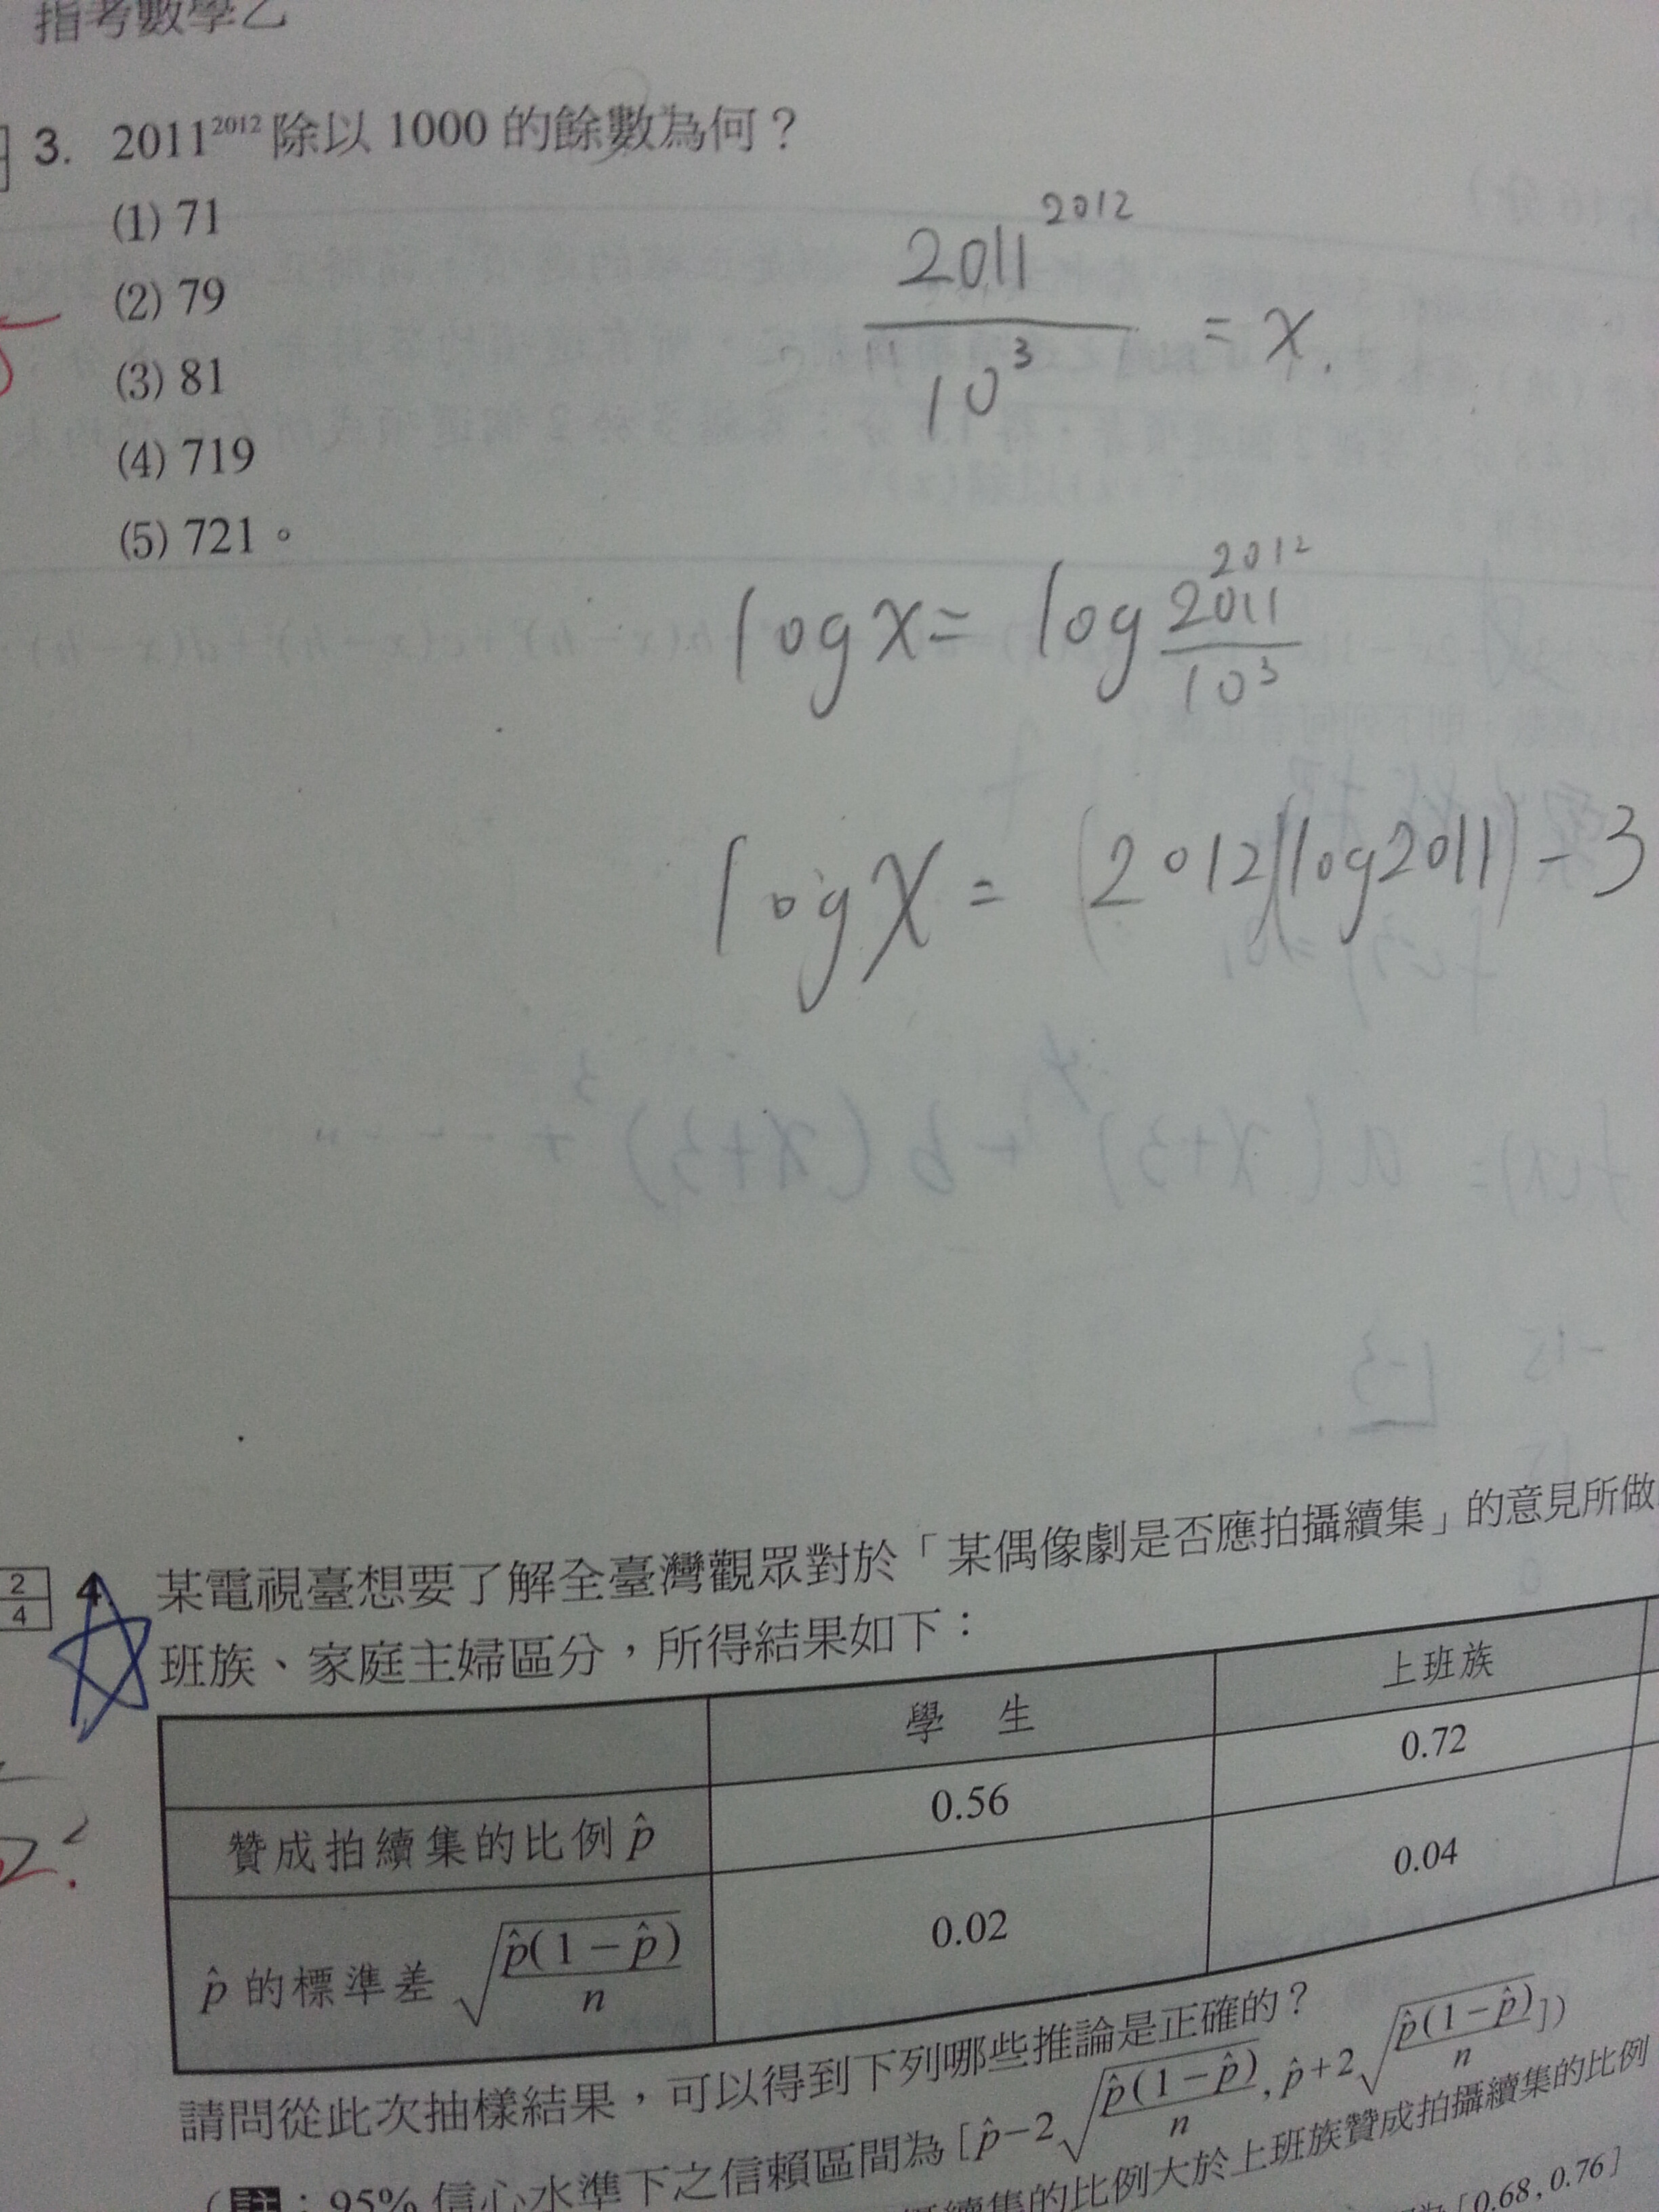 指考數學乙
3. 2011^2012 除以 1000 的餘數為何？
(1) 71
(2) 79
(3) 81
(4) 719
(5) 721。
2011^2012 / 10^3 = x.
log x = log 2011^2012 / 10^3
log x = (2012)(log 2011) - 3
2
4
4
某電視臺想要了解全臺灣觀眾對於「某偶像劇是否應拍攝續集」的意見所做
班族、家庭主婦區分，所得結果如下：
學 生 上班族
贊成拍續集的比例 p̂ 0.56 0.72
p̂ 的標準差 √(p̂(1－p̂)/n) 0.02 0.04
請問從此次抽樣結果，可以得到下列哪些推論是正確的？
（註：95% 信心水準下之信賴區間為 [p̂－2√(p̂(1－p̂)/n), p̂＋2√(p̂(1－p̂)/n)]）
攝續集的比例大於上班族贊成拍攝續集的比例
為 [0.68 , 0.76]